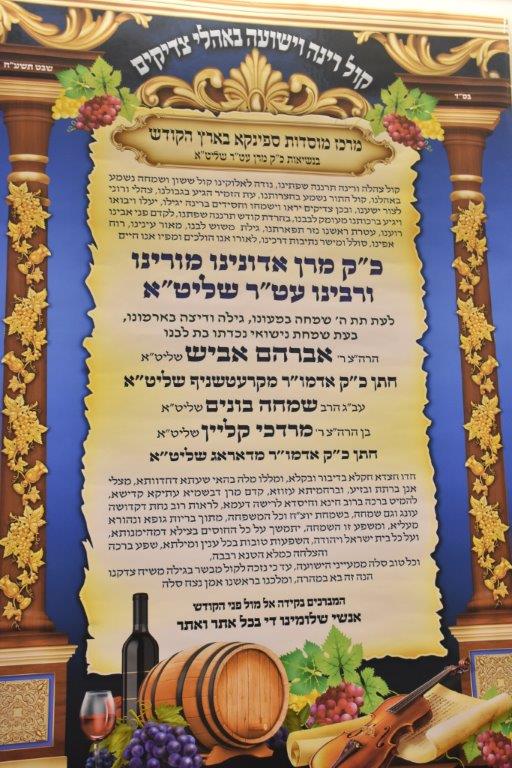 קול רינה וישועה באהלי צדיקים
שבט תשע"ח
בס"ד
מרכז מוסדות ספינקא בארץ הקודש
בנשיאות כ"ק מרן עט"ר שליט"א
קול צהלה ורינה תרננה שפתינו, נודה לאלוקינו קול ששון ושמחה נשמע
באהלנו, קול התור נשמע בחצרותנו, עת הזמיר הגיע בגבולנו, צהלי ורוני
לצור ישענו, ובכן צדיקים יראו וישמחו וחסידים ברינה יגילו, יעלו ויבואו
ויגיע ברכותנו מעומק לבבנו, בחרדת קודש תרננה שפתנו, לקדם פני אבינו
רוענו, עטרת ראשנו נזר תפארתנו, גילת משוש לבנו, מאור עינינו, רוח
אפינו, סולל ומישר נתיבות דרכינו, לאורו אנו הולכים ומפיו אנו חיים
כ"ק מרן אדונינו מורינו
ורבינו עט"ר שליט"א
לעת תת ה' שמחה במעונו, גילה ודיצה בארמונו,
בעת שמחת נישואי נכדתו בת לבנו
הרה"צ ר' אברהם אביש שליט"א
חתן כ"ק אדמו"ר מקרעטשניף שליט"א
עב"ג הרב שמחה בונים שליט"א
בן הרה"צ ר' מרדכי קליין שליט"א
חתן כ"ק אדמו"ר מדאראג שליט"א
חדו חצדא חקלא בדיבור ובקלא, ומללו מלה בהאי שעתא דחדוותא, מצלי
אנן ברתת ובזיע, וברחמיתא עזוזא, קדם מרן דבשמיא עתיקא קדישא,
להמיט ברכה ברוב חינא וחיסדא לרישה דעמא, לראות רוב נחת דקדושה
עונג וגם שמחה, בשמחת יוצ"ח וכל המשפחה, מתוך בריות גופא ונהורא
מעליא, ומשפע זו השמחה, יתמשך על כל החוסים בצילא דמהימנותא,
ועל כל בית ישראל ויהודה, השפעות טובות בכל ענין ומילתא, שפע ברכה
והצלחה כמלא הטנא רבבה,
וכל טוב סלה ממעייני הישועה, עד כי נזכה לקול מבשר בגילה משיח צדקנו
הנה זה בא במהרה, ומלכנו בראשנו אמן נצח סלה
המברכים בקידה אל מול פני הקודש
אנשי שלומינו די בכל אתר ואתר